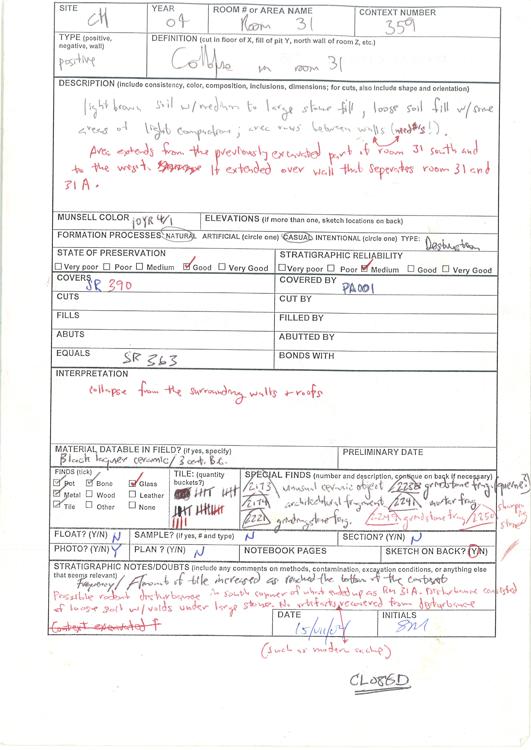 SITE CH YEAR 04 ROOM # OR AREA NAME Room 31 CONTEXT NUMBER 359
TYPE (positive, negative, wall) positive DEFINITION (cut in floor of X, fill of pit Y, north wall of room Z, etc.) Collapse in room 31
DESCRIPTION (include consistency, color, composition, inclusions, dimensions; for cuts, also include shape and orientation)
light brown soil w/ medium to large stone fill, loose soil fill w/ some
areas of light compaction; area runs between walls (need #s!).
Area extends from the previously excavated part of room 31 south and
to the west. It extended over wall that seperates room 31 and
31A.
MUNSELL COLOR 10YR 4/1 ELEVATIONS (if more than one, sketch locations on back)
FORMATION PROCESSES: NATURAL ARTIFICIAL (circle one) CASUAL INTENTIONAL (circle one) TYPE: Destruction
STATE OF PRESERVATION STRATIGRAPHIC RELIABILITY
Very poor Poor Medium Good Very Good Very poor Poor Medium Good Very Good
COVERS SR 390 COVERED BY PA001
CUTS CUT BY
FILLS FILLED BY
ABUTS ABUTTED BY
EQUALS SR 363 BONDS WITH
INTERPRETATION
collapse from the surrounding walls + roofs
MATERIAL DATABLE IN FIELD? (if yes, specify) PRELIMINARY DATE
Black laquer ceramic / 3 cent. B.C.
FINDS (tick) TILE: (quantity buckets?) SPECIAL FINDS (number and description, continue on back if necessary)
Pot Bone Glass 2173 unusual ceramic object grindstone frag
Metal Wood Leather 2174 architectural fragment 2241 mortar frag
Tile Other None 2221 grindstone frag. 2249 grindstone frag 2250
FLOAT? (Y/N) N SAMPLE? (if yes, # and type) N SECTION? (Y/N) N
PHOTO? (Y/N) Y PLAN? (Y/N) N NOTEBOOK PAGES SKETCH ON BACK? (Y/N)
STRATIGRAPHIC NOTES/DOUBTS (include any comments on methods, contamination, excavation conditions, or anything else
that seems relevant) Frequency / Amount of tile increased as reached the bottom of the context
Possible rodent disturbance in south corner of what ended up as Rm 31A. Disturbance consisted
of loose soil w/ voids under large stone. No artifacts recovered from disturbance
Context excavated f
DATE 15/VII/04 INITIALS
(such as modern scrap)
CL086D